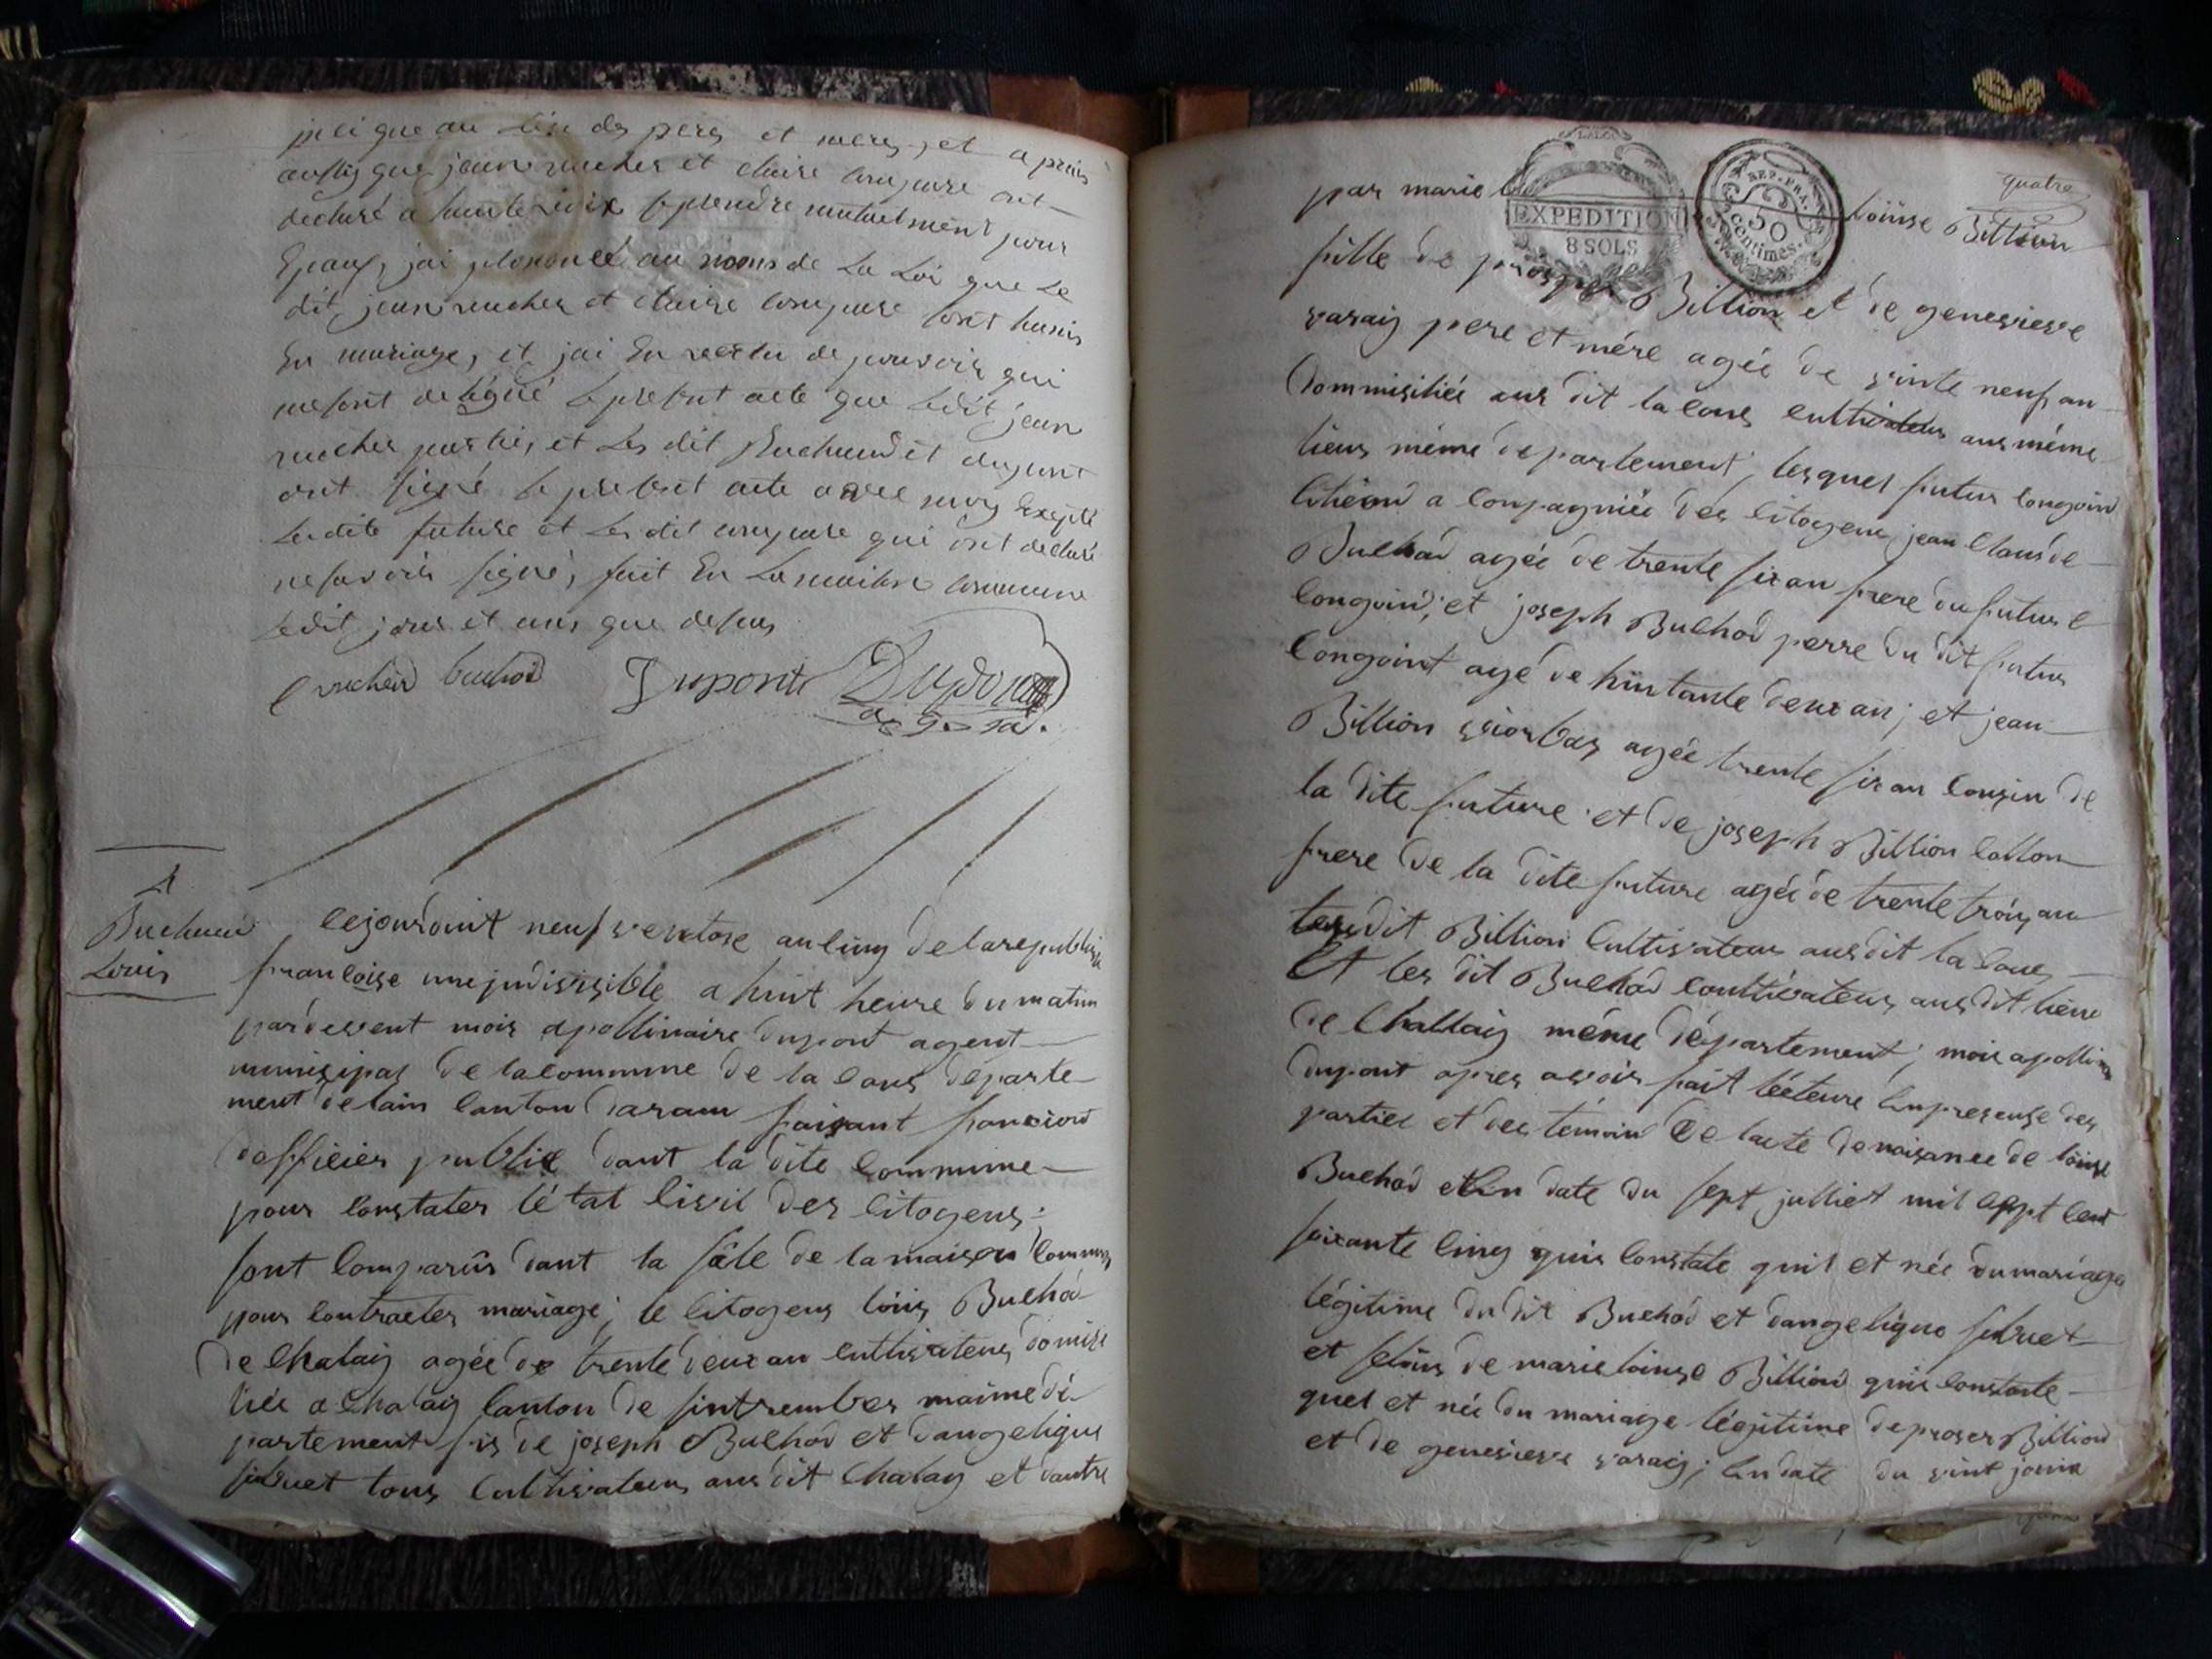 que au des peres et meres, et apreis
aussy que jean rucher et claire ont
declaré a haute voix se prendre mutuelment pour
Epoux, jai prononcé au noms de La Loi que Le
dit jean rucher et claire sont hunis
En mariage, et jai En vertu de pouvoirs qui
me sont delégué le present acte que ledit jean
rucher partie, et Les dit Buchaud et dupont
ont signé le present acte avec moy Excepté
La dite future et Les dit qui ont declaré
ne savoir signé, fait En La maison commune
Ledit jour et ans que desus
buchod Duponts Dupont
a g
4
Buchaud
Louis
cejourduit neuf ventose an cinq de la republique
francoise une jndivisible a huit heure du matin
pardevent mois apollinaire dupont agent
munisipas de la commune de la coux departe
ment de lain canton daram faisant foncion
dofficier publie dant la dite commune
pour constater létat civil des citogens;
sont comparûs dant la sâle de la maison commune
pour contracter mariage; le citogens loüis Buchod
de Chalaig agée de trente deux an cultivateur domisi
liée a Chalaig canton de sintrember maime dé
partement fis de joseph Buchod et dangelique
tous Cultivateur aus dit Chalaig et dautre
quatre
par marie loüise Billion
EXPEDITION
8 SOLS
REP. FRA.
50
Centimes
fille de prosper Billion et de genevieve
varaig pere et mére agée de vinte neuf an
dommisiliée aus dit la coux cultivateur aus méme
lieux méme departement; lesquel futur congoind
a conpagniée des citogens jean Claude
Buchod agée de trente six an frere du futur c
congoind; et joseph Buchod perre du dit futur
Congoint agé de deux an; et jean
Billion agée trente six an cousin de
la dite future et de joseph Billion
frere de la dite future agée de trente troiz an
dit Billion Cultivateur aus dit la coux
Et les dit Buchod coultivateur aus dit lieux
de Challaig méme département; mois apollinaire
dupont apres avoir fait lécteure Enpresense des
parties et des témoins De lacte de naisance de loüis
Buchod etEn date du sept julliet mil sept cent
soixante cinq quis constate quil et née du mariage
légitime du dit Buchod et dangelique
et selüis de marie loüise Billiond quis constate
quel et née du mariage légitime de proser Billiond
et de genevieve varaig; En date du vint